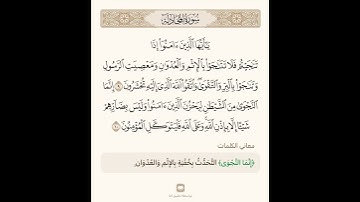 سُورَةُ المُجَادلة
يَٰٓأَيُّهَا ٱلَّذِينَ ءَامَنُوٓا۟ إِذَا
تَنَٰجَيْتُمْ فَلَا تَتَنَٰجَوْا۟ بِٱلْإِثْمِ وَٱلْعُدْوَٰنِ وَمَعْصِيَتِ ٱلرَّسُولِ
وَتَنَٰجَوْا۟ بِٱلْبِرِّ وَٱلتَّقْوَىٰ وَٱتَّقُوا۟ ٱللَّهَ ٱلَّذِىٓ إِلَيْهِ تُحْشَرُونَ ٩ إِنَّمَا
ٱلنَّجْوَىٰ مِنَ ٱلشَّيْطَٰنِ لِيَحْزُنَ ٱلَّذِينَ ءَامَنُوا۟ وَلَيْسَ بِضَآرِّهِمْ
شَيْـًٔا إِلَّا بِإِذْنِ ٱللَّهِ وَعَلَى ٱللَّهِ فَلْيَتَوَكَّلِ ٱلْمُؤْمِنُونَ ١٠
معاني الكلمات
﴿إِنَّمَا النَّجْوَى﴾ التَّحَدُّثُ بِخُفْيَةٍ بِالإِثْمِ، وَالعُدْوَانِ.